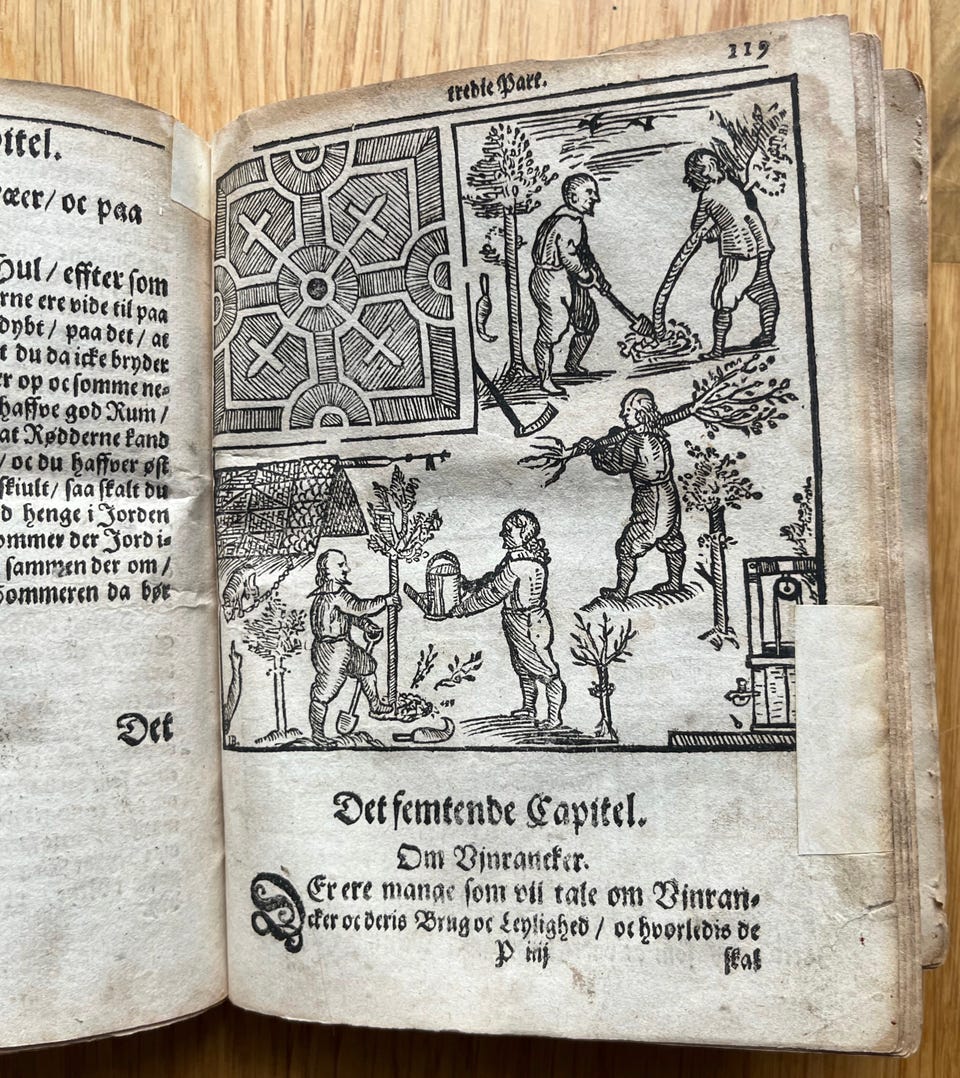 pitel.
/ oc paa
Hul / effter som
erne ere vide til paa
dybt / paa det / at
t du da icke bryder
er op oc somme ne-
haffve god Rum /
at Rødderne kand
/ oc du haffver øst
skiult / saa skalt du
d henge i Jorden
ommer der Jord i-
sammen der om /
Sommeren da bør
Det
119
tredie Part.
Det femtende Capitel.
Om Vjnrancker.
DEr ere mange som vil tale om Vjnran-
cker oc deris Brug oc Leylighed / oc hvorledis de
P iiij
skal